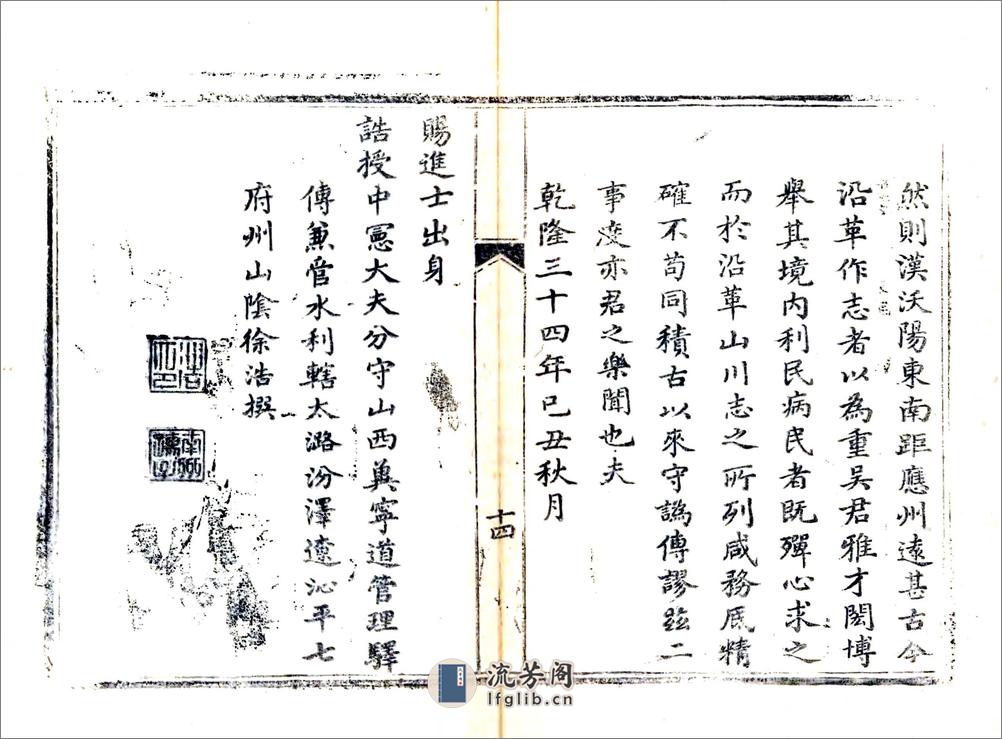 然則漢沃陽東南距應州遠甚古今
沿革作志者以為重吳君雅才閎博
舉其境内利民病民者既殫心求之
而於沿革山川志之所列咸務底精
確不苟同積古以來守譌傳謬茲二
事凌亦君之樂聞也夫
乾隆三十四年己丑秋月
十四
賜進士出身
誥授中憲大夫分守山西冀寧道管理驛
傳兼管水利轄太潞汾澤遼沁平七
府州山陰徐浩撰
流芳阁
lfglib.cn